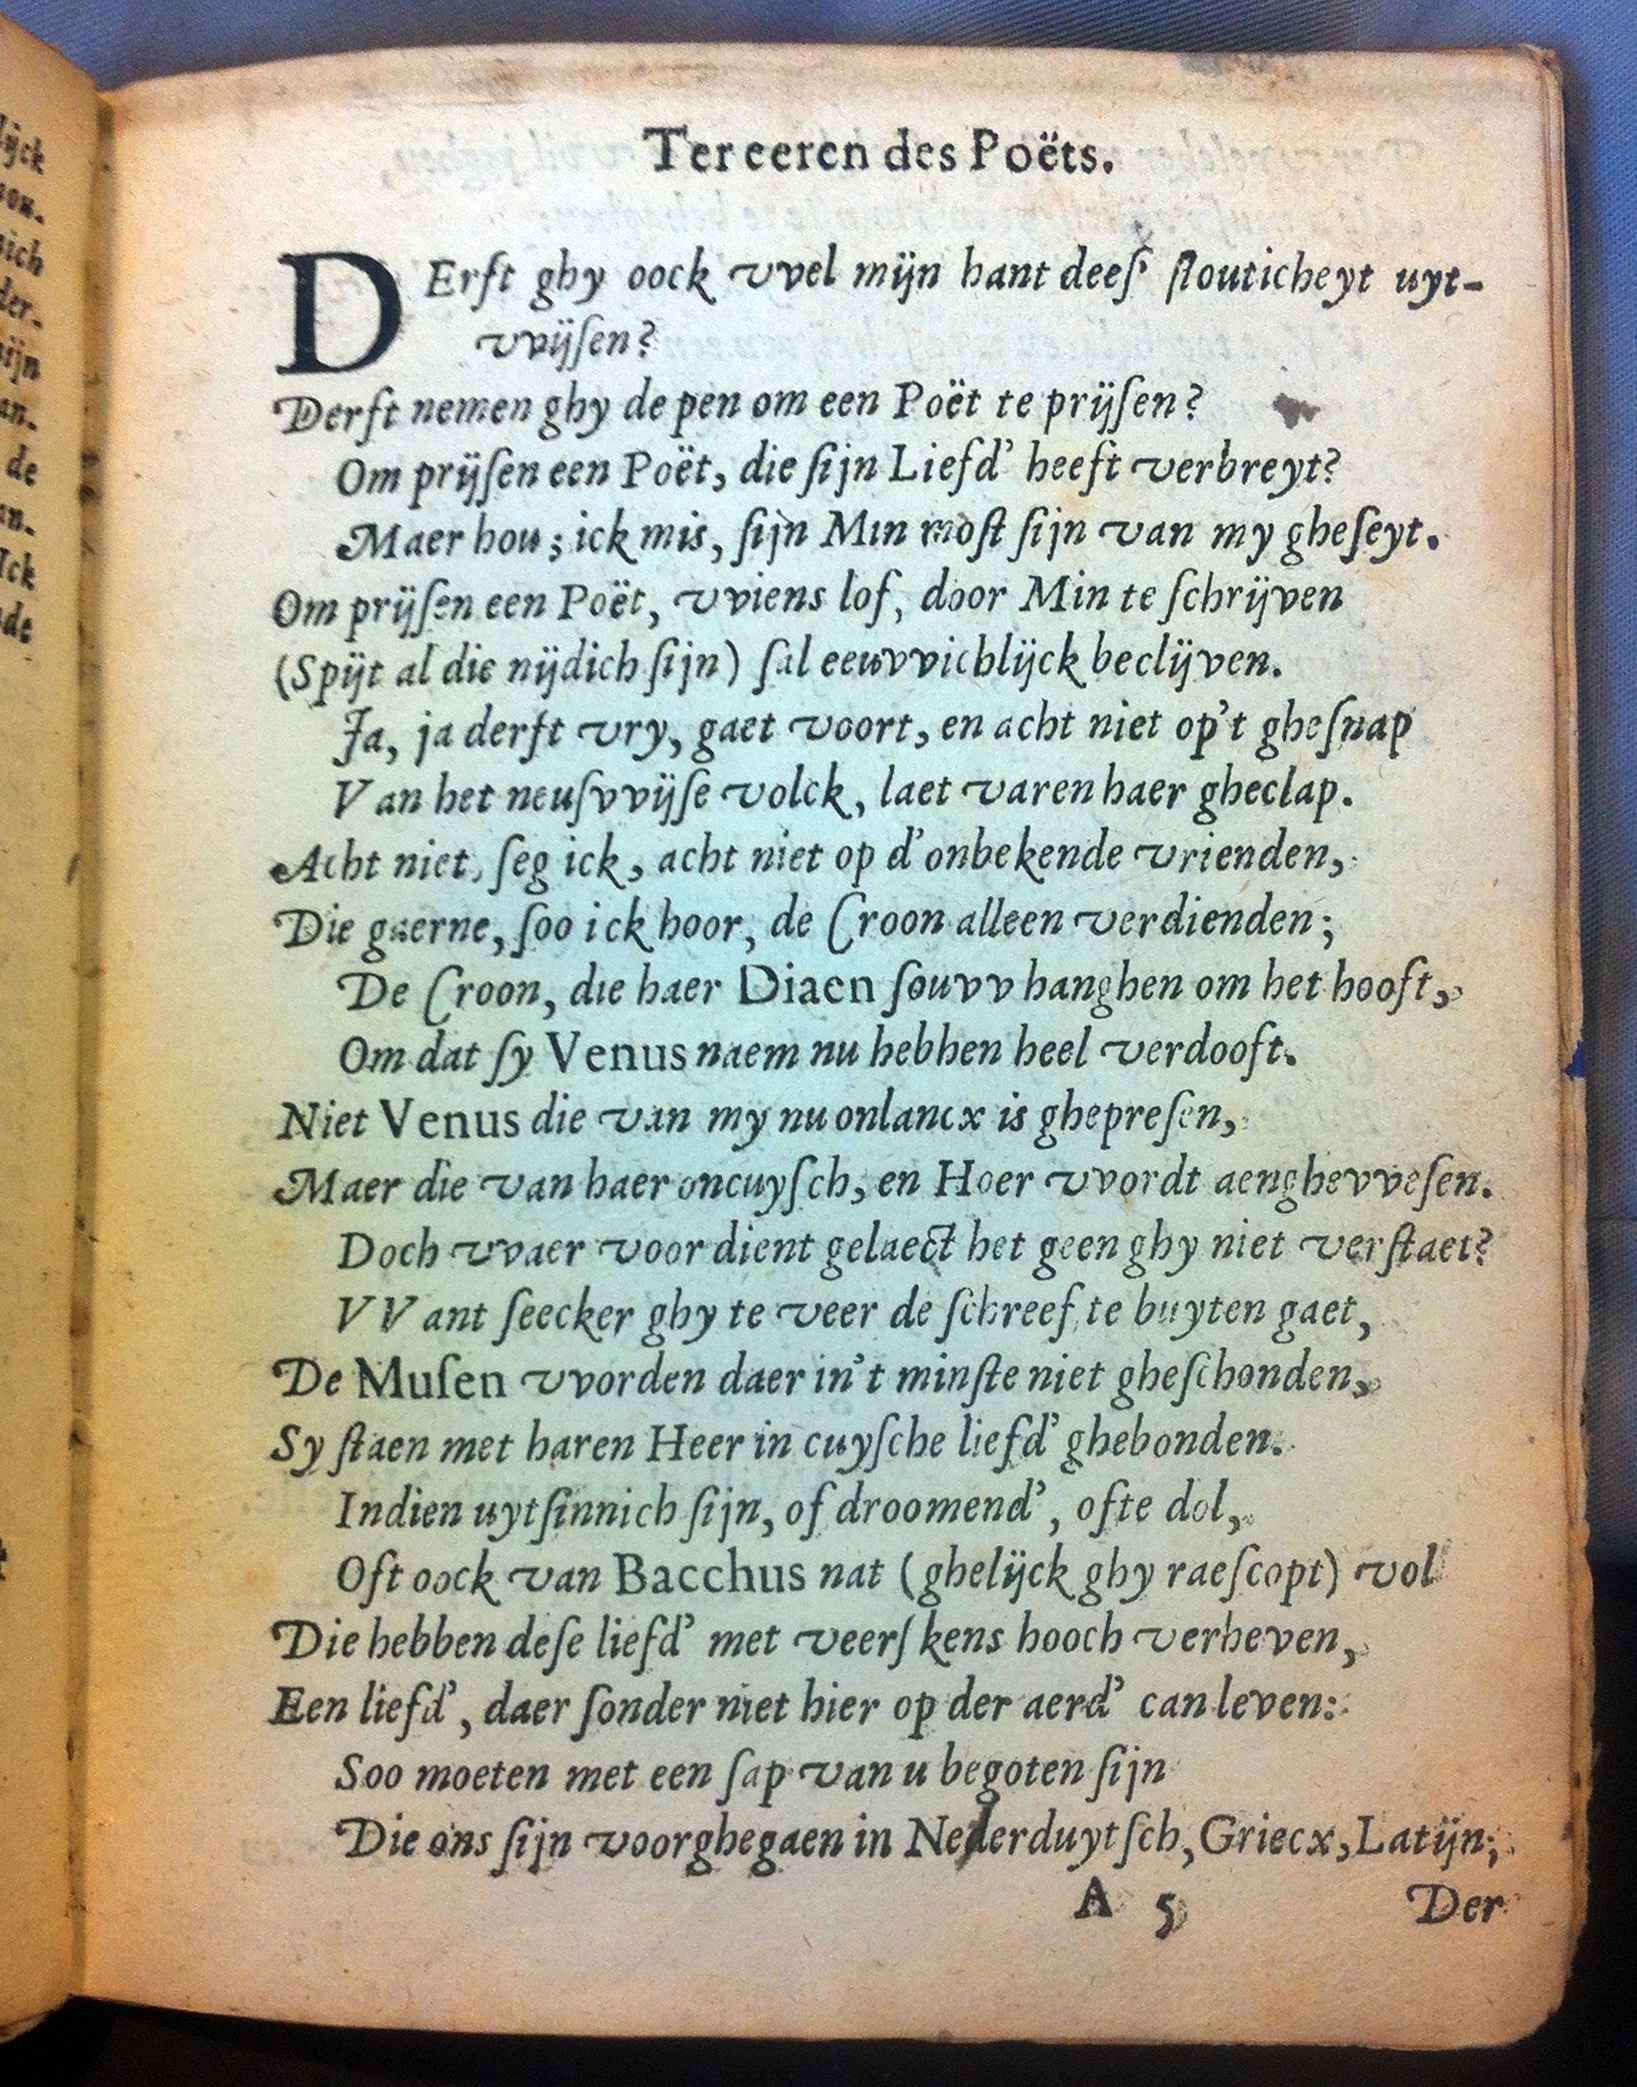 Ter eeren des Poëts.
DErft ghy oock vvel mijn hant deeſ' ſtouticheyt uyt-
vvijſen?
Derft nemen ghy de pen om een Poët te prijſen?
Om prijſen een Poët, die ſijn Liefd' heeft verbreyt?
Maer hou; ick mis, ſijn Min moſt ſijn van my gheſeyt.
Om prijſen een Poët, vviens lof, door Min te ſchrijven
(Spijt al die nijdich ſijn) ſal eeuvvichlijck beclijven.
Ja, ja derft vry, gaet voort, en acht niet op't gheſnap
Van het neuſvvijſe volck, laet varen haer gheclap.
Acht niet, ſeg ick, acht niet op d'onbekende vrienden,
Die gaerne, ſoo ick hoor, de Croon alleen verdienden;
De Croon, die haer Diaen ſouvv hanghen om het hooft,
Om dat ſy Venus naem nu hebben heel verdooft.
Niet Venus die van my nu onlancx is ghepreſen,
Maer die van haer oncuyſch, en Hoer vvordt aenghevveſen.
Doch vvaer voor dient gelaect het geen ghy niet verſtaet?
VVant ſeecker ghy te veer de ſchreef te buyten gaet,
De Muſen vvorden daer in't minſte niet gheſchonden,
Sy ſtaen met haren Heer in cuyſche liefd' ghebonden.
Indien uytſinnich ſijn, of droomend', ofte dol,
Oft oock van Bacchus nat (ghelijck ghy raeſcopt) vol
Die hebben deſe liefd' met veerſkens hooch verheven,
Een liefd', daer ſonder niet hier op der aerd' can leven:
Soo moeten met een ſap van u begoten ſijn
Die ons ſijn voorghegaen in Nederduytſch, Griecx, Latijn;
A 5 Der
lijck
sou-
nich
der-
mijn
an-
de
an-
Ick
nde